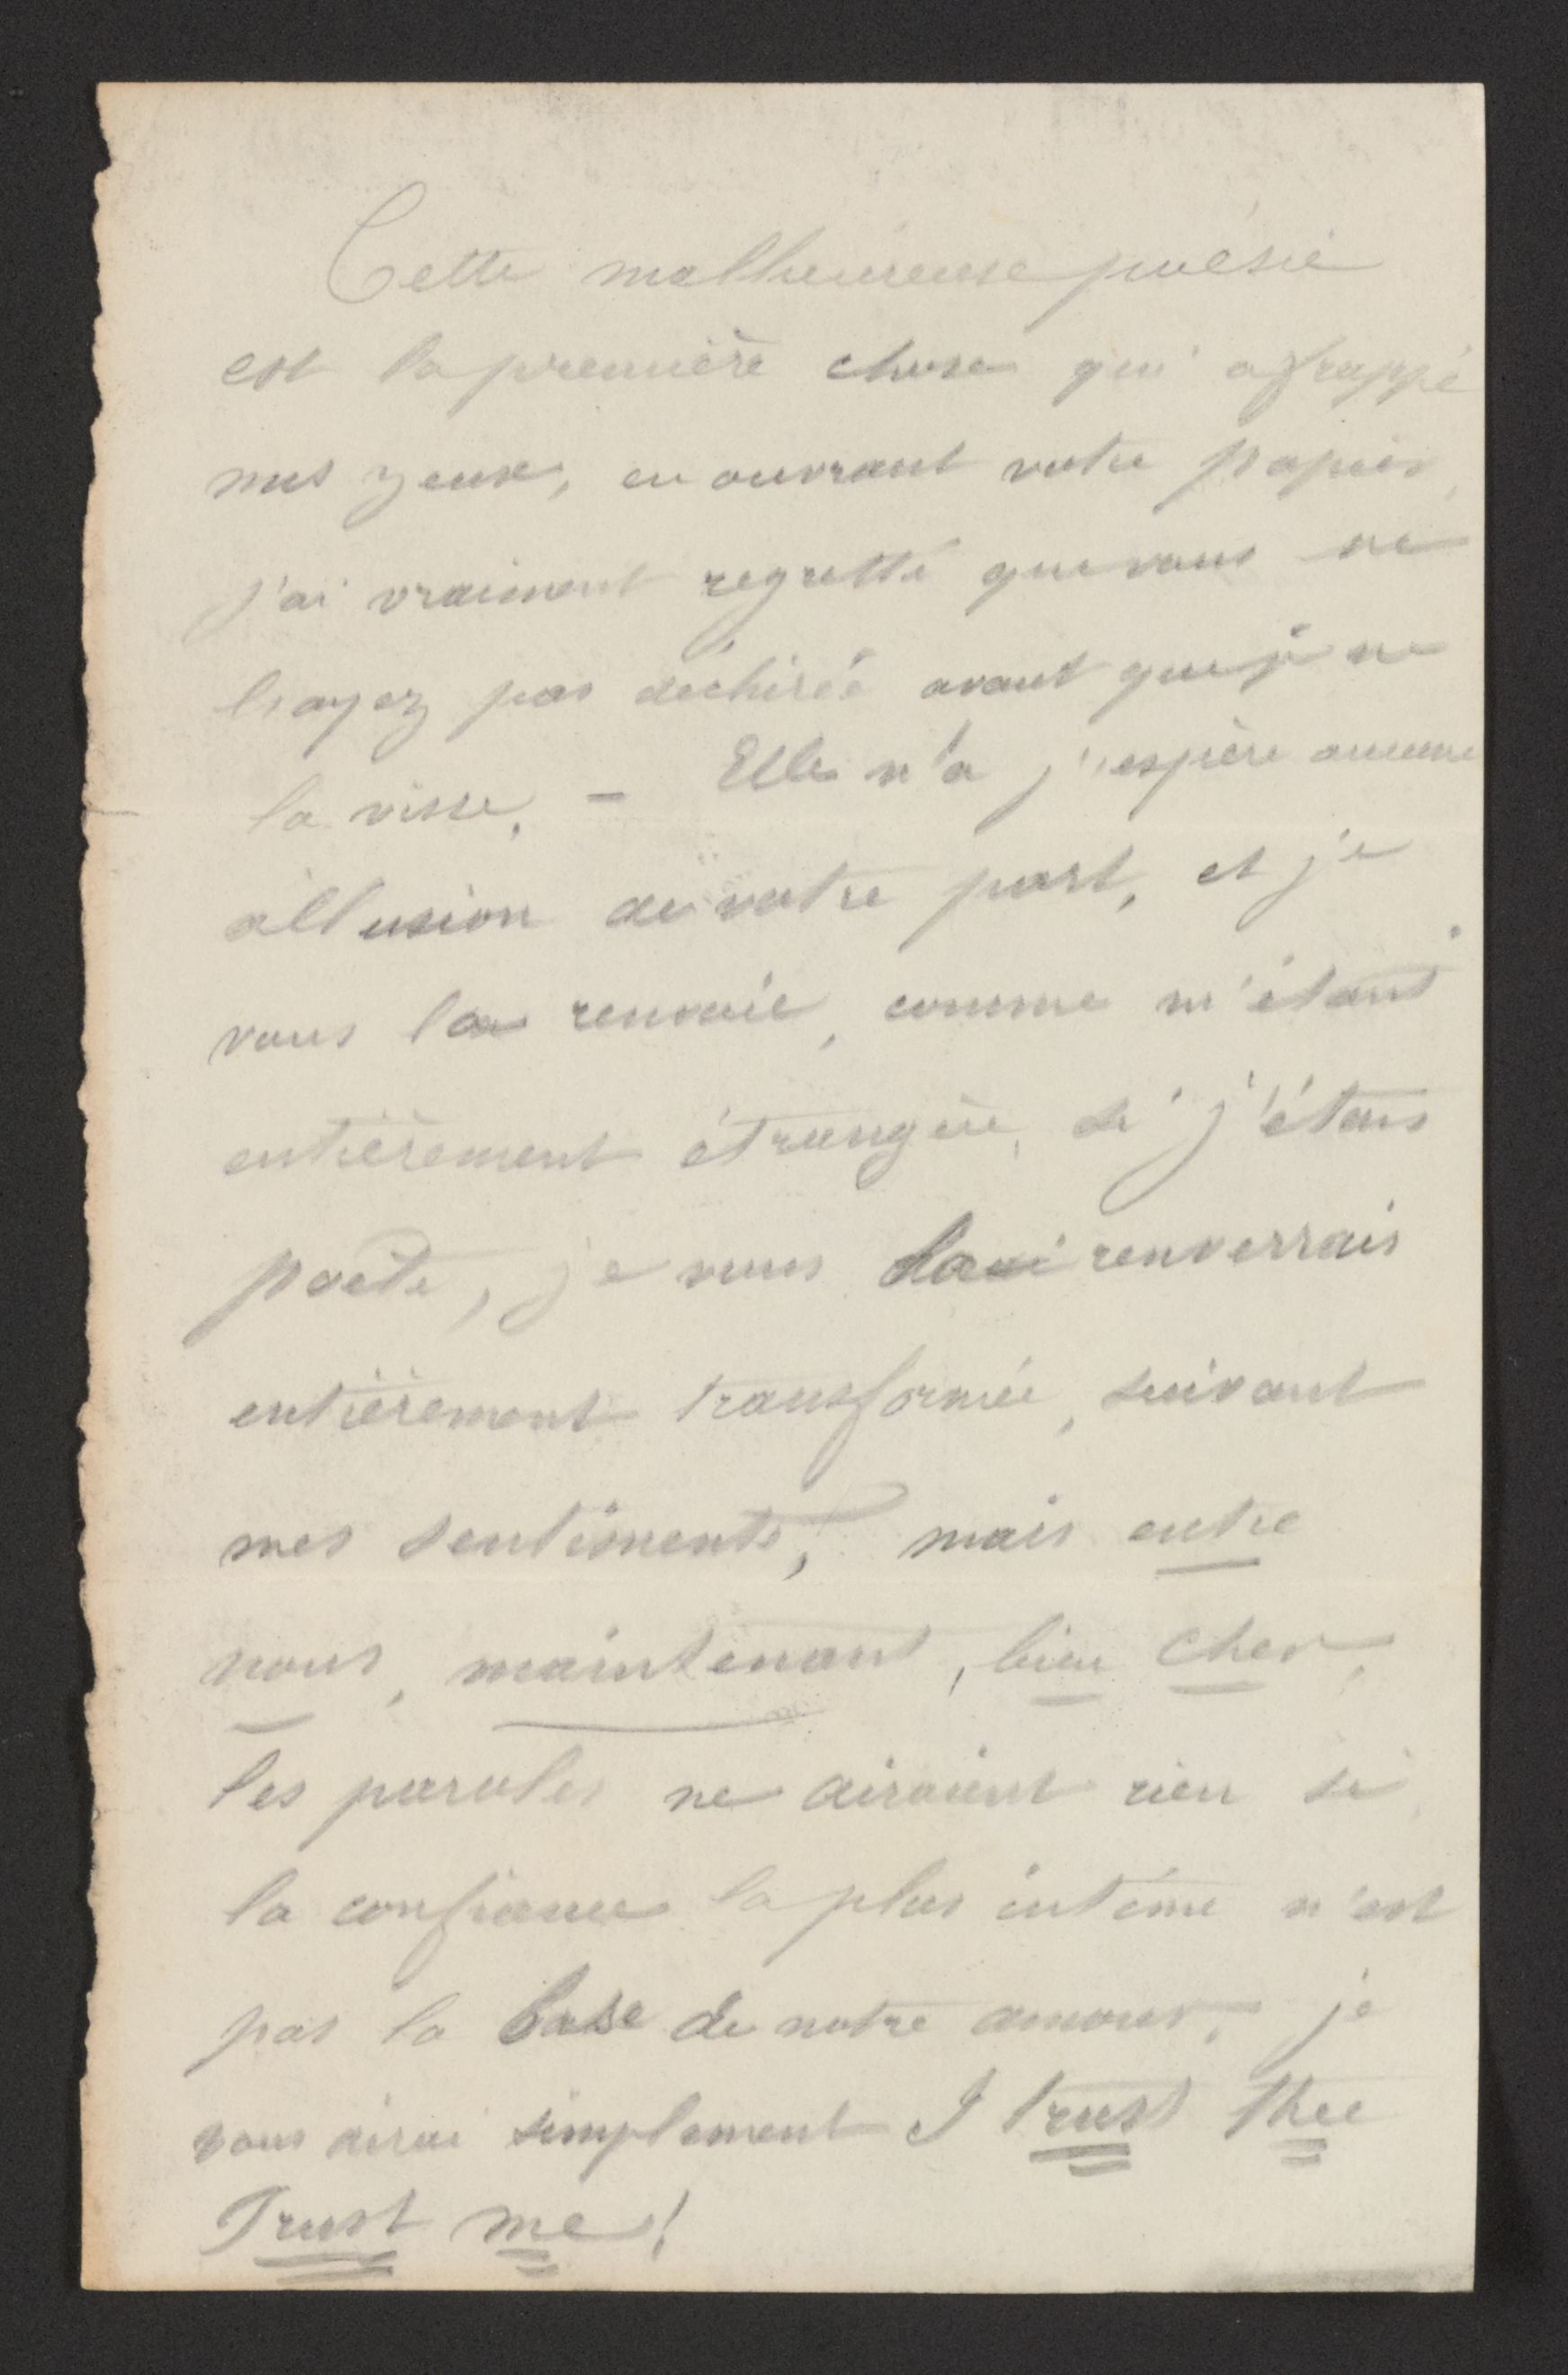 Cette malheureuse poésie
est la première chose qui a frappé
mes yeux, en ouvrant votre papier,
j'ai vraiment regretté que vous ne
l'ayez pas déchirée avant que je ne
la visse. - Elle n'a j'espère aucune
allusion de votre part, et je
vous la renvoie, comme m'étant
entièrement étrangère, si j'étais
poète, je vous la renverrais
entièrement transformée, suivant
mes sentiments, mais entre
nous, maintenant, bien cher,
les paroles ne diraient rien si
la confiance la plus intime n'est
pas la base de notre amour, je
vous dirai simplement I trust thee
Trust me!